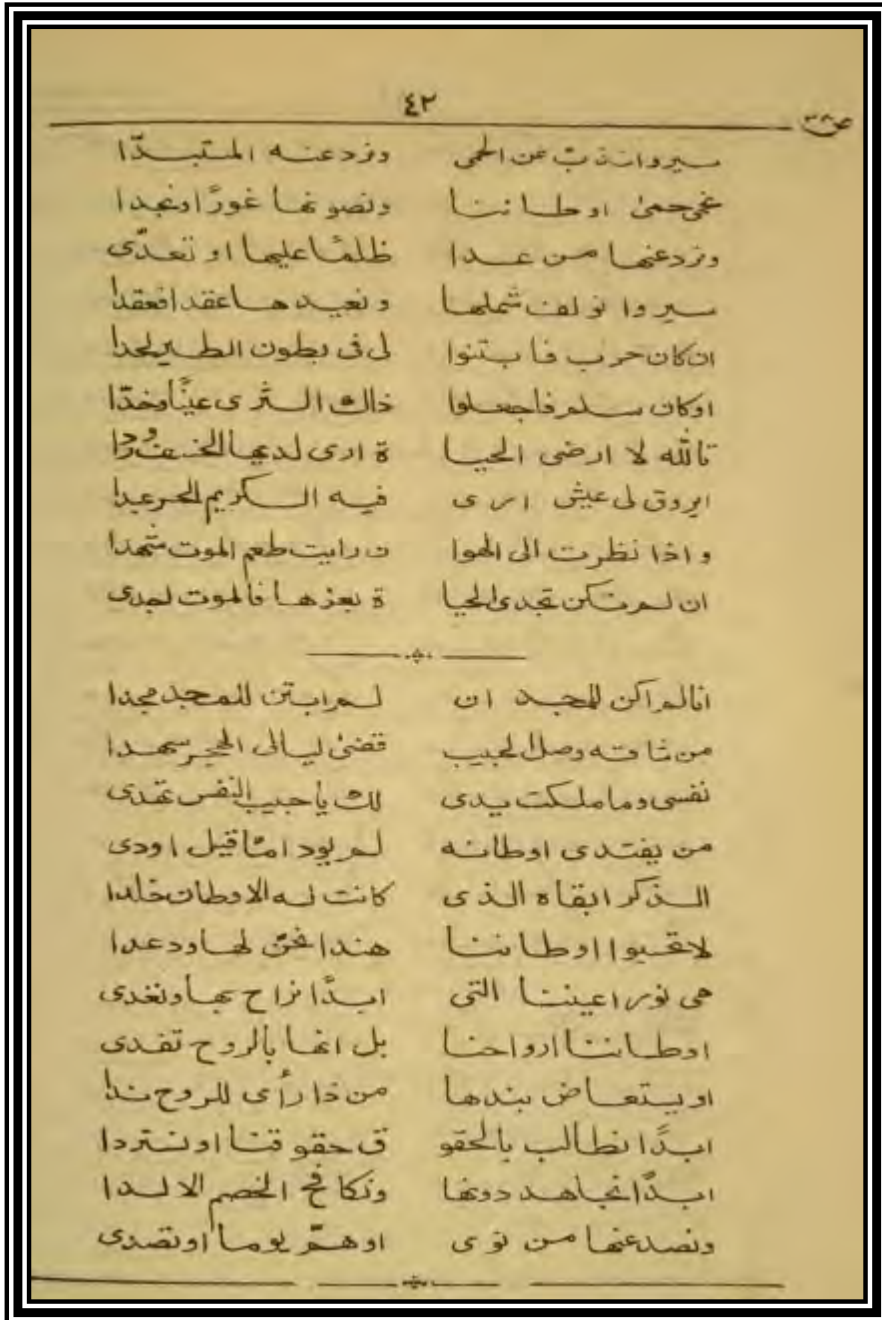 ٤٢
سيروا نذبّ عن الحمى ونردعنه المستبدّا
نحمي حمى اوطاننا ونصونها غورًا ونجدا
ونردعنها من عدا ظلمًا عليها او تعدّى
سيروا نولف شملها ونعيدها عقدا فعقدا
ان كان حرب فابتنوا لى فى بطون الطير لحدا
او كان سلم فاجعلوا ذاك الثرى عينًا وخدّا
تالله لا ارضى الحيا ة ارى لديها الخسف وردا
ايروق لى عيش ارى فيه الكريم الحر عبدا
واذا نظرت الى الهوا ن رايت طعم الموت شهدا
ان لم تكن تجدى الحيا ة بعزها فالموت اجدى
انا لم اكن للمجد ان لم ابتن للمجد مجدا
من شاقه وصل الحبيب قضىٰ ليالى الهجر سهدا
نفسى وما ملكت يدى لك يا حبيب النفس تهدى
من يفتدى اوطانه لم يود امّا قيل اودى
الذكر ابقاه الذى كانت له الاوطان خلدا
لا تحسبوا اوطاننا هندا نحنّ لها ودعدا
هى نور اعيننا التى ابدًا نراح بها ونغدى
اوطاننا ارواحنا بل انها بالروح تفدى
او يستعاض بندها من ذا رأى للروح ندا
ابدًا نطالب بالحقو ق حقوقنا او نستردا
ابدًا نجاهد دونها ونكافح الخصم الالدا
ونصدعنها من نوى اوهمّ يوما او تصدى